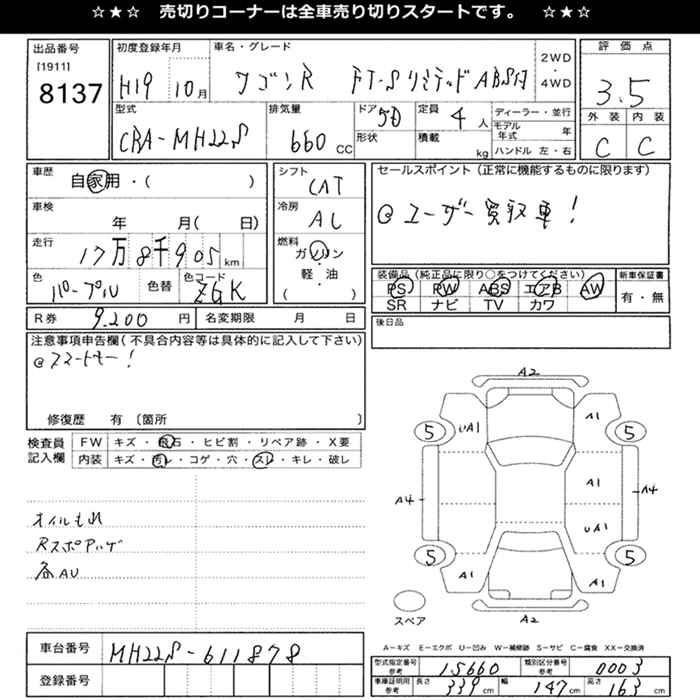 ☆★☆ 売切りコーナーは全車売り切りスタートです。 ☆★☆
出品番号 初度登録年月 車名・グレード 2WD・4WD 評価点
[1911] 8137 H19 10月 ワゴンR FT-Sリミテッド ABS付 3.5
型式 排気量 ドア 5D 定員 4人 ディーラー・並行 外装 内装
CBA-MH22S 660CC 形状 積載 kg モデル年式 年 C C
ハンドル 左・右
車歴 自家用・( ) シフト CAT セールスポイント (正常に機能するものに限ります)
車検 年 月( 日) 冷房 AC @ユーザー買取車!
走行 17万8千905km 燃料 ガソリン・軽・油 ( )
色 パープル 色替 色コード ZGK
装備品 (純正品に限り○をつけてください) 新車保証書
PS PW ABS エアB AW 有・無
SR ナビ TV カワ
R券 9,200円 名変期限 月 日 後日品
注意事項申告欄 (不具合内容等は具体的に記入して下さい)
@スマートキー!
修復歴 有 [箇所
検査員記入欄 FW キズ・飛石・ヒビ割・リペア跡・X要
内装 キズ・汚レ・コゲ・穴・スレ・キレ・破レ
オイルもれ
Rスポアハゲ
各AU
A2
UA1 A1
5 5
A4 A1 A4
UA1
5 5
A1 A1
スペア A2
A-キズ E-エクボ U-凹み W-補修跡 S-サビ C-腐食 XX-交換済
車台番号 MH22S-611878 型式指定番号 参考 15660 類別区分番号 参考 0003
登録番号 車庫証明用 参考 長さ 339cm 幅 147cm 高さ 163cm